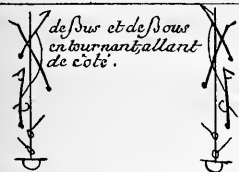 deßus et deßous
en tournant, allant
de côté.